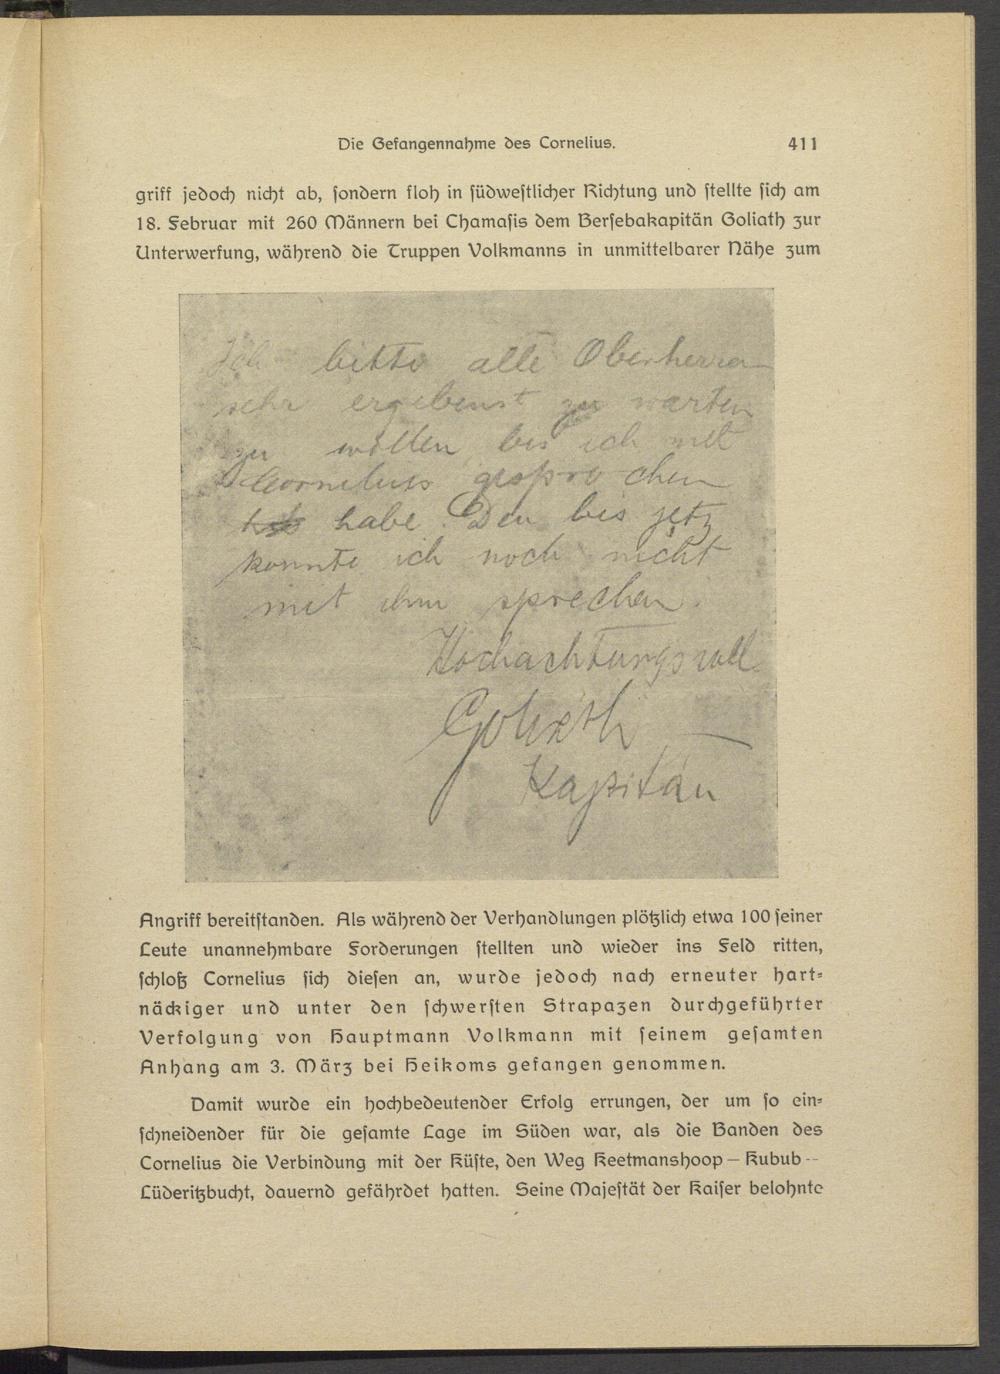 Die Gefangennahme des Cornelius. 411
griff jedoch nicht ab, sondern floh in südwestlicher Richtung und stellte sich am
18. Februar mit 260 Männern bei Chamasis dem Bersebakapitän Goliath zur
Unterwerfung, während die Truppen Volkmanns in unmittelbarer Nähe zum
Ich bitte alle Oberherren
sehr ergebenst zu warten
zu wollen bis ich mit
Cornelius gesprochen
habe. Den bis jetz
konnte ich noch nicht
mit ihm sprechen.
Hochachtungsvoll
Goliath
Kapitän
Angriff bereitstanden. Als während der Verhandlungen plötzlich etwa 100 seiner
Leute unannehmbare Forderungen stellten und wieder ins Feld ritten,
schloß Cornelius sich diesen an, wurde jedoch nach erneuter hart-
näckiger und unter den schwersten Strapazen durchgeführter
Verfolgung von Hauptmann Volkmann mit seinem gesamten
Anhang am 3. März bei Heikoms gefangen genommen.
Damit wurde ein hochbedeutender Erfolg errungen, der um so ein-
schneidender für die gesamte Lage im Süden war, als die Banden des
Cornelius die Verbindung mit der Küste, den Weg Keetmanshoop – Kubub –
Lüderitzbucht, dauernd gefährdet hatten. Seine Majestät der Kaiser belohnte